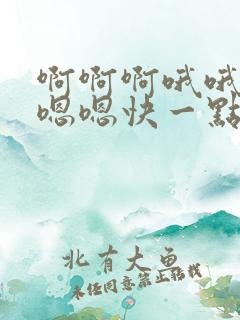 啊啊啊哦哦
嗯嗯快一點
北有大魚
未經同意禁止轉載